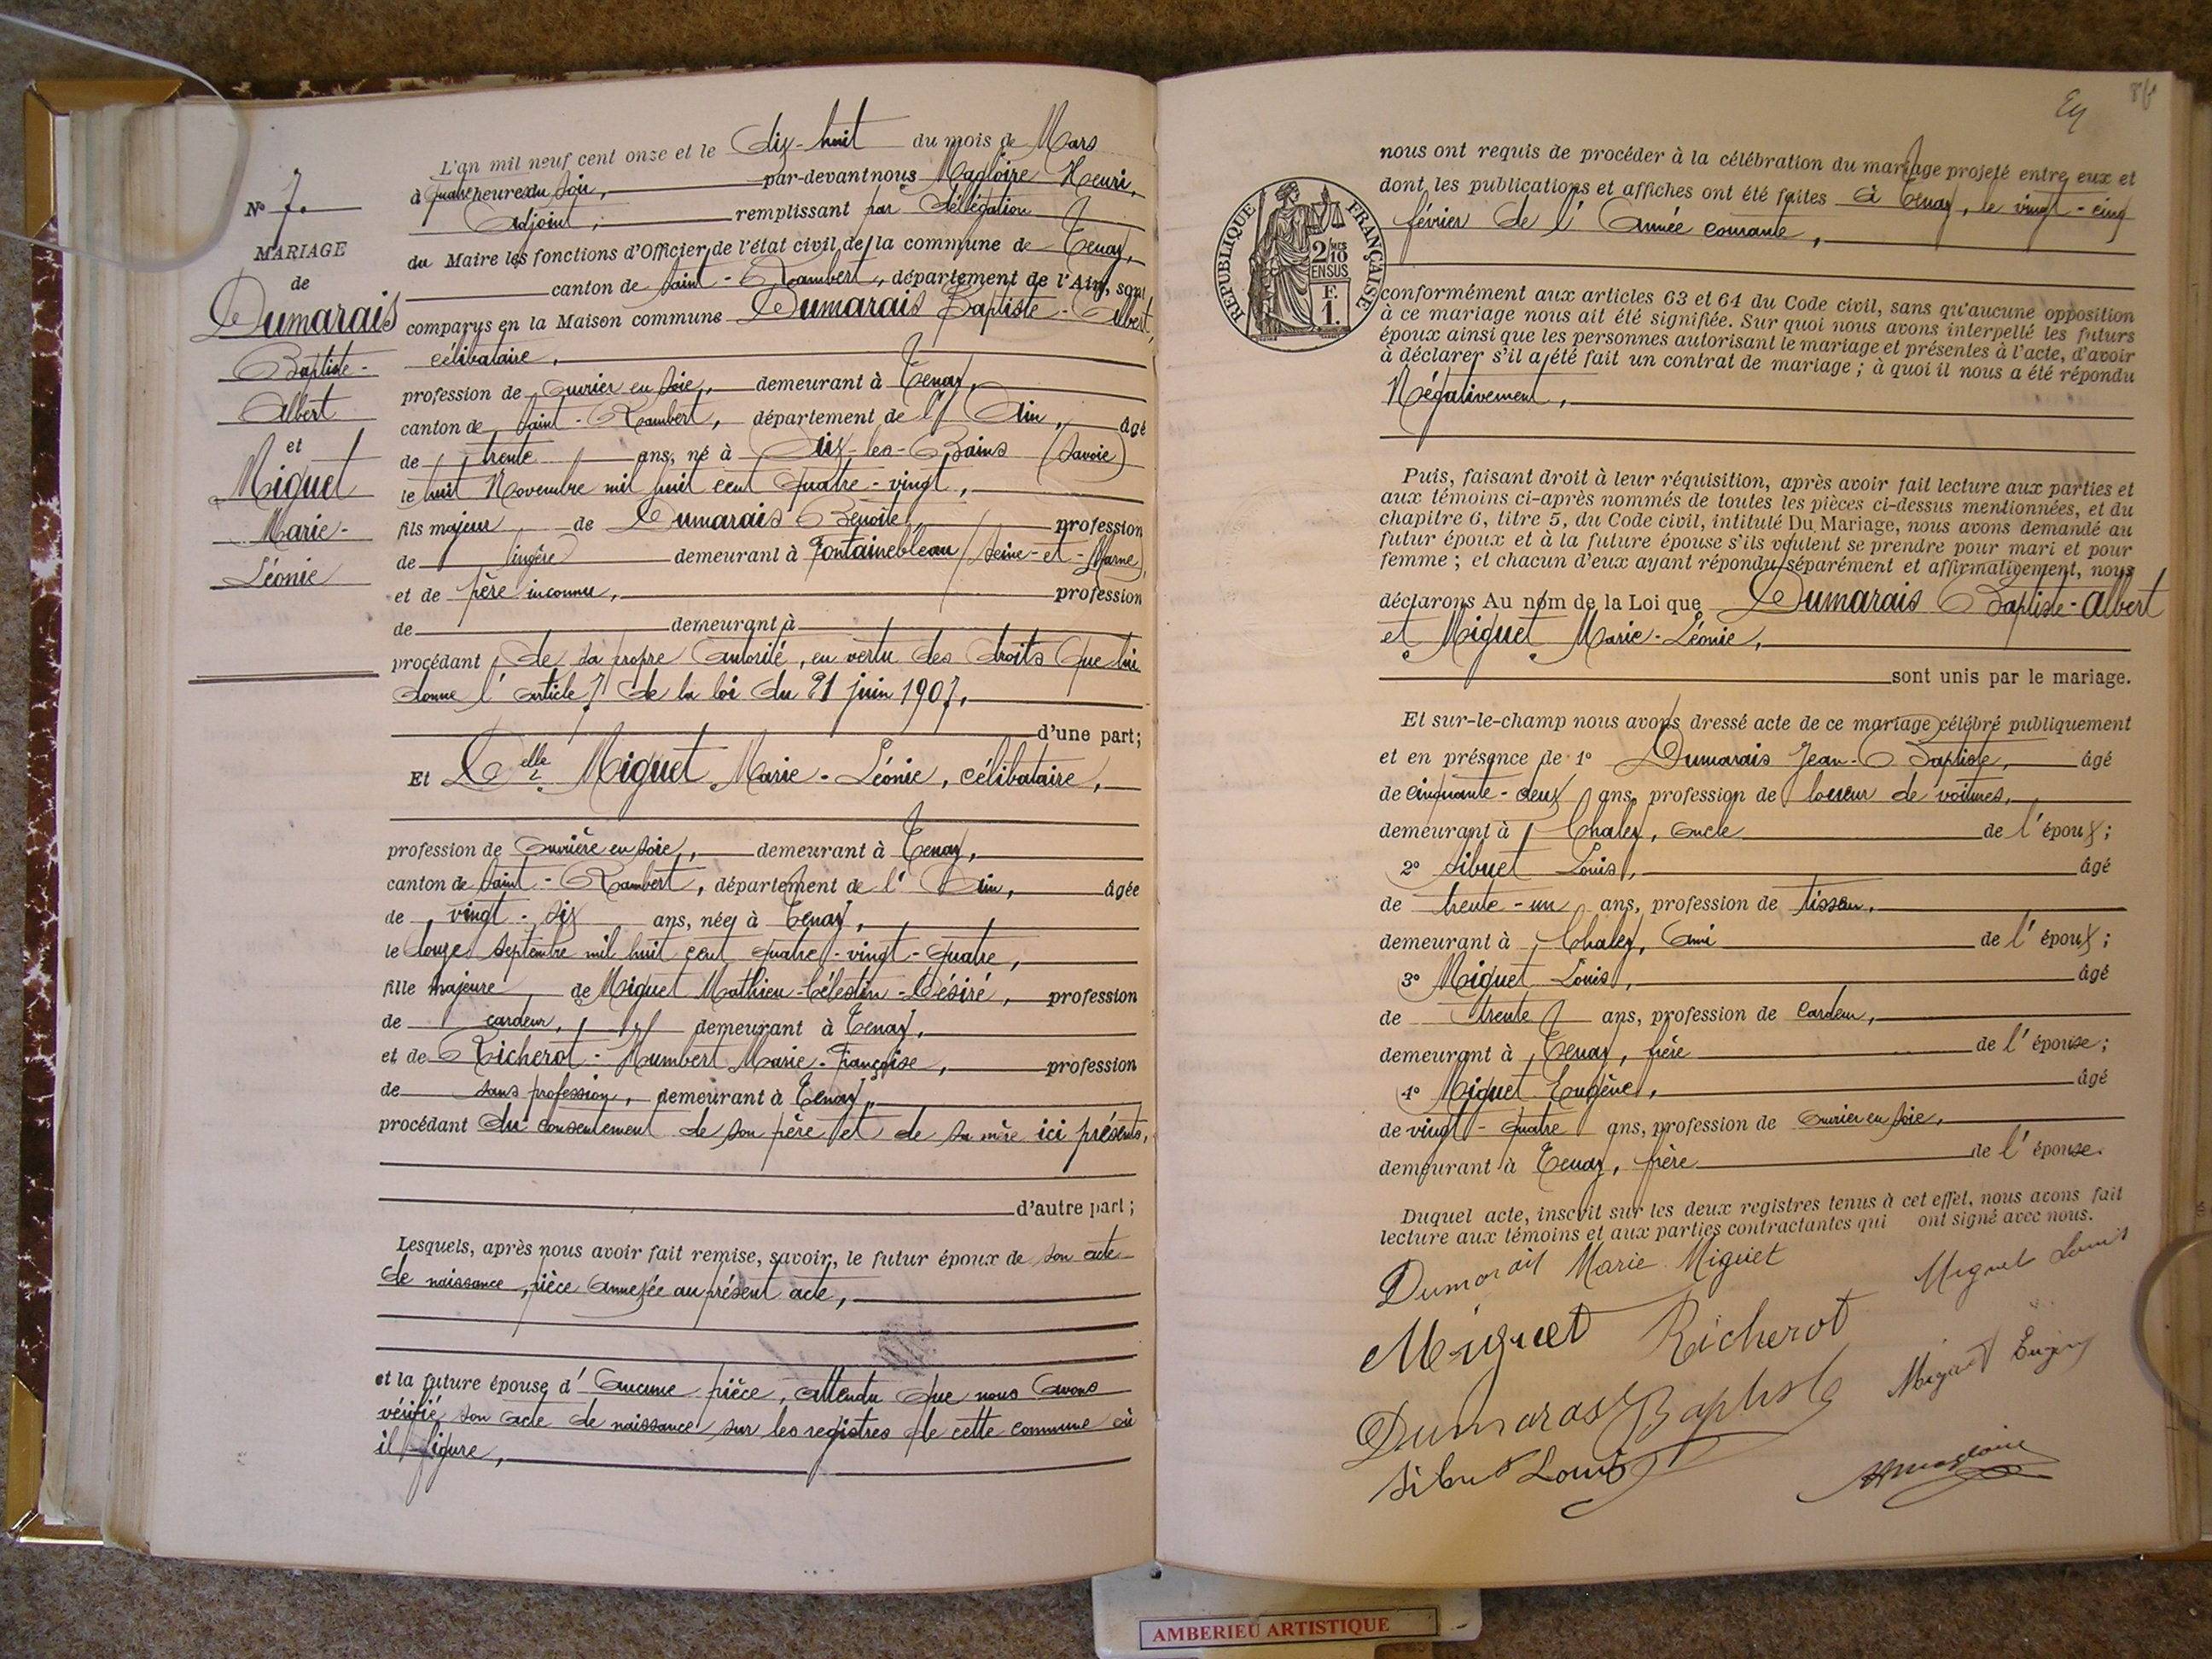 L'an mil neuf cent onze et le dix-huit du mois de Mars
à quatre heures du soir, par-devant nous Magloire Henri,
Adjoint, remplissant par délégation
du Maire les fonctions d'Officier de l'état civil de la commune de Tenay,
canton de Saint-Rambert, département de l'Ain, sont
comparus en la Maison commune Dumarais Baptiste-Albert,
célibataire,
profession de ouvrier en soie, demeurant à Tenay,
canton de Saint-Rambert, département de l'Ain, âgé
de trente ans, né à Aix-les-Bains (Savoie)
le huit Novembre mil huit cent quatre-vingt,
fils majeur de Dumarais Benoite, profession
de lingère demeurant à Fontainebleau (Seine-et-Marne),
et de père inconnu, profession
de demeurant à
procédant de sa propre autorité, en vertu des droits que lui
donne l'article 7 de la loi du 21 juin 1907,
d'une part;
Et Delle Miguet Marie-Léonie, célibataire,
profession de ouvrière en soie, demeurant à Tenay,
canton de Saint-Rambert, département de l'Ain, âgée
de vingt-six ans, née à Tenay,
le douze septembre mil huit cent quatre-vingt-quatre,
fille majeure de Miguet Mathieu-Célestin-Désiré, profession
de cardeur, demeurant à Tenay,
et de Richerot-Humbert Marie-Françoise, profession
de sans profession, demeurant à Tenay,
procédant du consentement de son père et de sa mère ici présents,
d'autre part;
Lesquels, après nous avoir fait remise, savoir, le futur époux de son acte
de naissance, pièce annexée au présent acte,
et la future épouse d'aucune pièce, attendu que nous avons
vérifié son acte de naissance sur les registres de cette commune où
il figure,
N° 7.
MARIAGE
de
Dumarais
Baptiste-
Albert
et
Miguet
Marie-
Léonie
nous ont requis de procéder à la célébration du mariage projeté entre eux et
dont les publications et affiches ont été faites à Tenay, le vingt-cinq
février de l'année courante,
RÉPUBLIQUE FRANÇAISE
2/10
EN SUS
F.
1.
conformément aux articles 63 et 64 du Code civil, sans qu'aucune opposition
à ce mariage nous ait été signifiée. Sur quoi nous avons interpellé les futurs
époux ainsi que les personnes autorisant le mariage et présentes à l'acte, d'avoir
à déclarer s'il a été fait un contrat de mariage; à quoi il nous a été répondu
Négativement,
Puis, faisant droit à leur réquisition, après avoir fait lecture aux parties et
aux témoins ci-après nommés de toutes les pièces ci-dessus mentionnées, et du
chapitre 6, titre 5, du Code civil, intitulé Du Mariage, nous avons demandé au
futur époux et à la future épouse s'ils veulent se prendre pour mari et pour
femme; et chacun d'eux ayant répondu séparément et affirmativement, nous
déclarons Au nom de la Loi que Dumarais Baptiste-Albert
et Miguet Marie-Léonie,
sont unis par le mariage.
Et sur-le-champ nous avons dressé acte de ce mariage célébré publiquement
et en présence de 1° Dumarais Jean-Baptiste, âgé
de cinquante-deux ans, profession de loueur de voitures,
demeurant à Chaley, oncle de l'époux;
2° Sibuet Louis, âgé
de trente-un ans, profession de tisseur,
demeurant à Chaley, ami de l'époux;
3° Miguet Louis, âgé
de trente ans, profession de cardeur,
demeurant à Tenay, frère de l'épouse;
4° Miguet Eugène, âgé
de vingt-quatre ans, profession de ouvrier en soie,
demeurant à Tenay, frère de l'épouse.
Duquel acte, inscrit sur les deux registres tenus à cet effet, nous avons fait
lecture aux témoins et aux parties contractantes qui ont signé avec nous.
Dumarais Marie Miguet Miguet Louis
Miguet Richerot
Dumarais Baptiste Miguet Eugène
Sibuet Louis HMagloire
AMBERIEU ARTISTIQUE